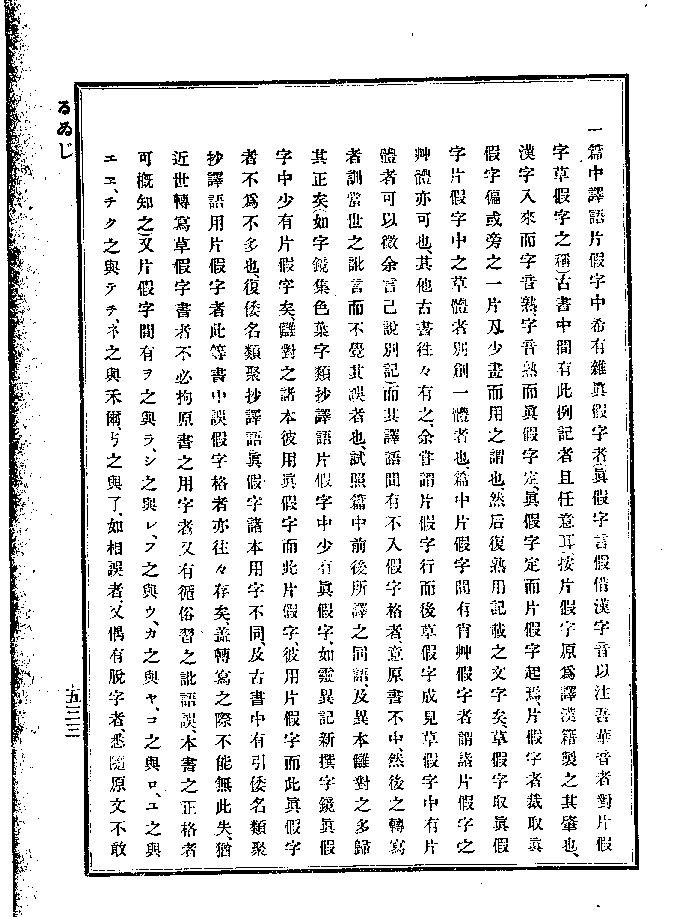 一篇中譯語片假字中希有雜眞假字者（眞假字言假借漢字音以注吾華音者對片假
字草假字之稱）古書中間有此例記者且任意耳按片假字原爲譯漢籍製之其肇也、
漢字入來而字音熟、字音熟而眞假字定、眞假字定而片假字起焉、片假字者裁取眞
假字偏或旁之一片及少畫而用之謂也、然后復熟用記載之文字矣、草假字取眞假
字片假字中之草體者別創一體者也、篇中片假字間有宵艸假字者謂諸片假字之
艸體亦可也、其他古書往々有之、余嘗謂片假字行而後草假字成見草假字中有片
體者可以徵余言己說別記）而其譯語間有不入假字格者、意原書不中、然後之轉寫
者訓當世之訛言而不覺其誤者也、試照篇中前後所譯之同語、及異本讎對之多歸
其正矣、如字鏡集色葉字類抄譯語片假字中少有眞假字、如靈異記新撰字鏡眞假
字中少有片假字矣、讎對之諸本彼用眞假字而此片假字、彼用片假字而此眞假字
者不爲不多也、復倭名類聚抄譯語眞假字諸本用字不同、及古書中有引倭名類聚
抄譯語用片假字者此等書中誤假字格者亦往々存矣、蓋轉寫之際不能無此失、猶
近世轉寫草假字書者不必拘原書之用字者又有循俗習之訛語誤、本書之正格者
可概知之）又片假字間有ヲ之與ラ、シ之與レ、フ之與ウ、カ之與ヤ、コ之與ロ、ユ之與
エヱ、チク之與テチ、ネ之與禾爾、丂之與了、如相誤者又偶有脫字者、悉隨原文不敢
るゐじ
五三三